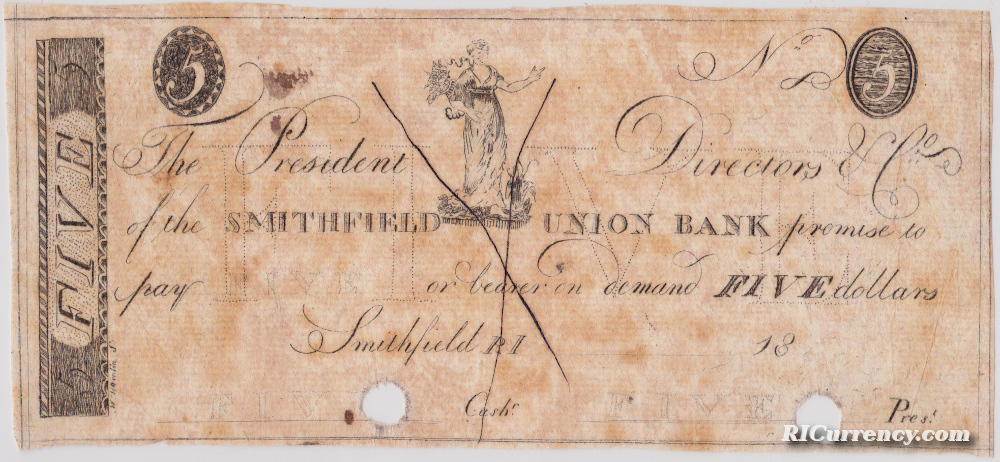 5 Nº 5
FIVE
The President Directors & Co.
of the SMITHFIELD UNION BANK promise to
pay FIVE or bearer on demand FIVE dollars
Smithfield RI 18
FIVE Cashr FIVE Prest
RICurrency.com